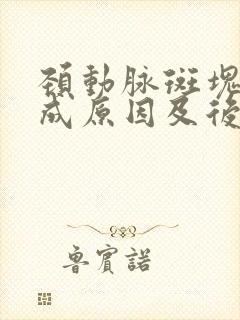 頸動脈斑塊
成原因及後
魯賓諾